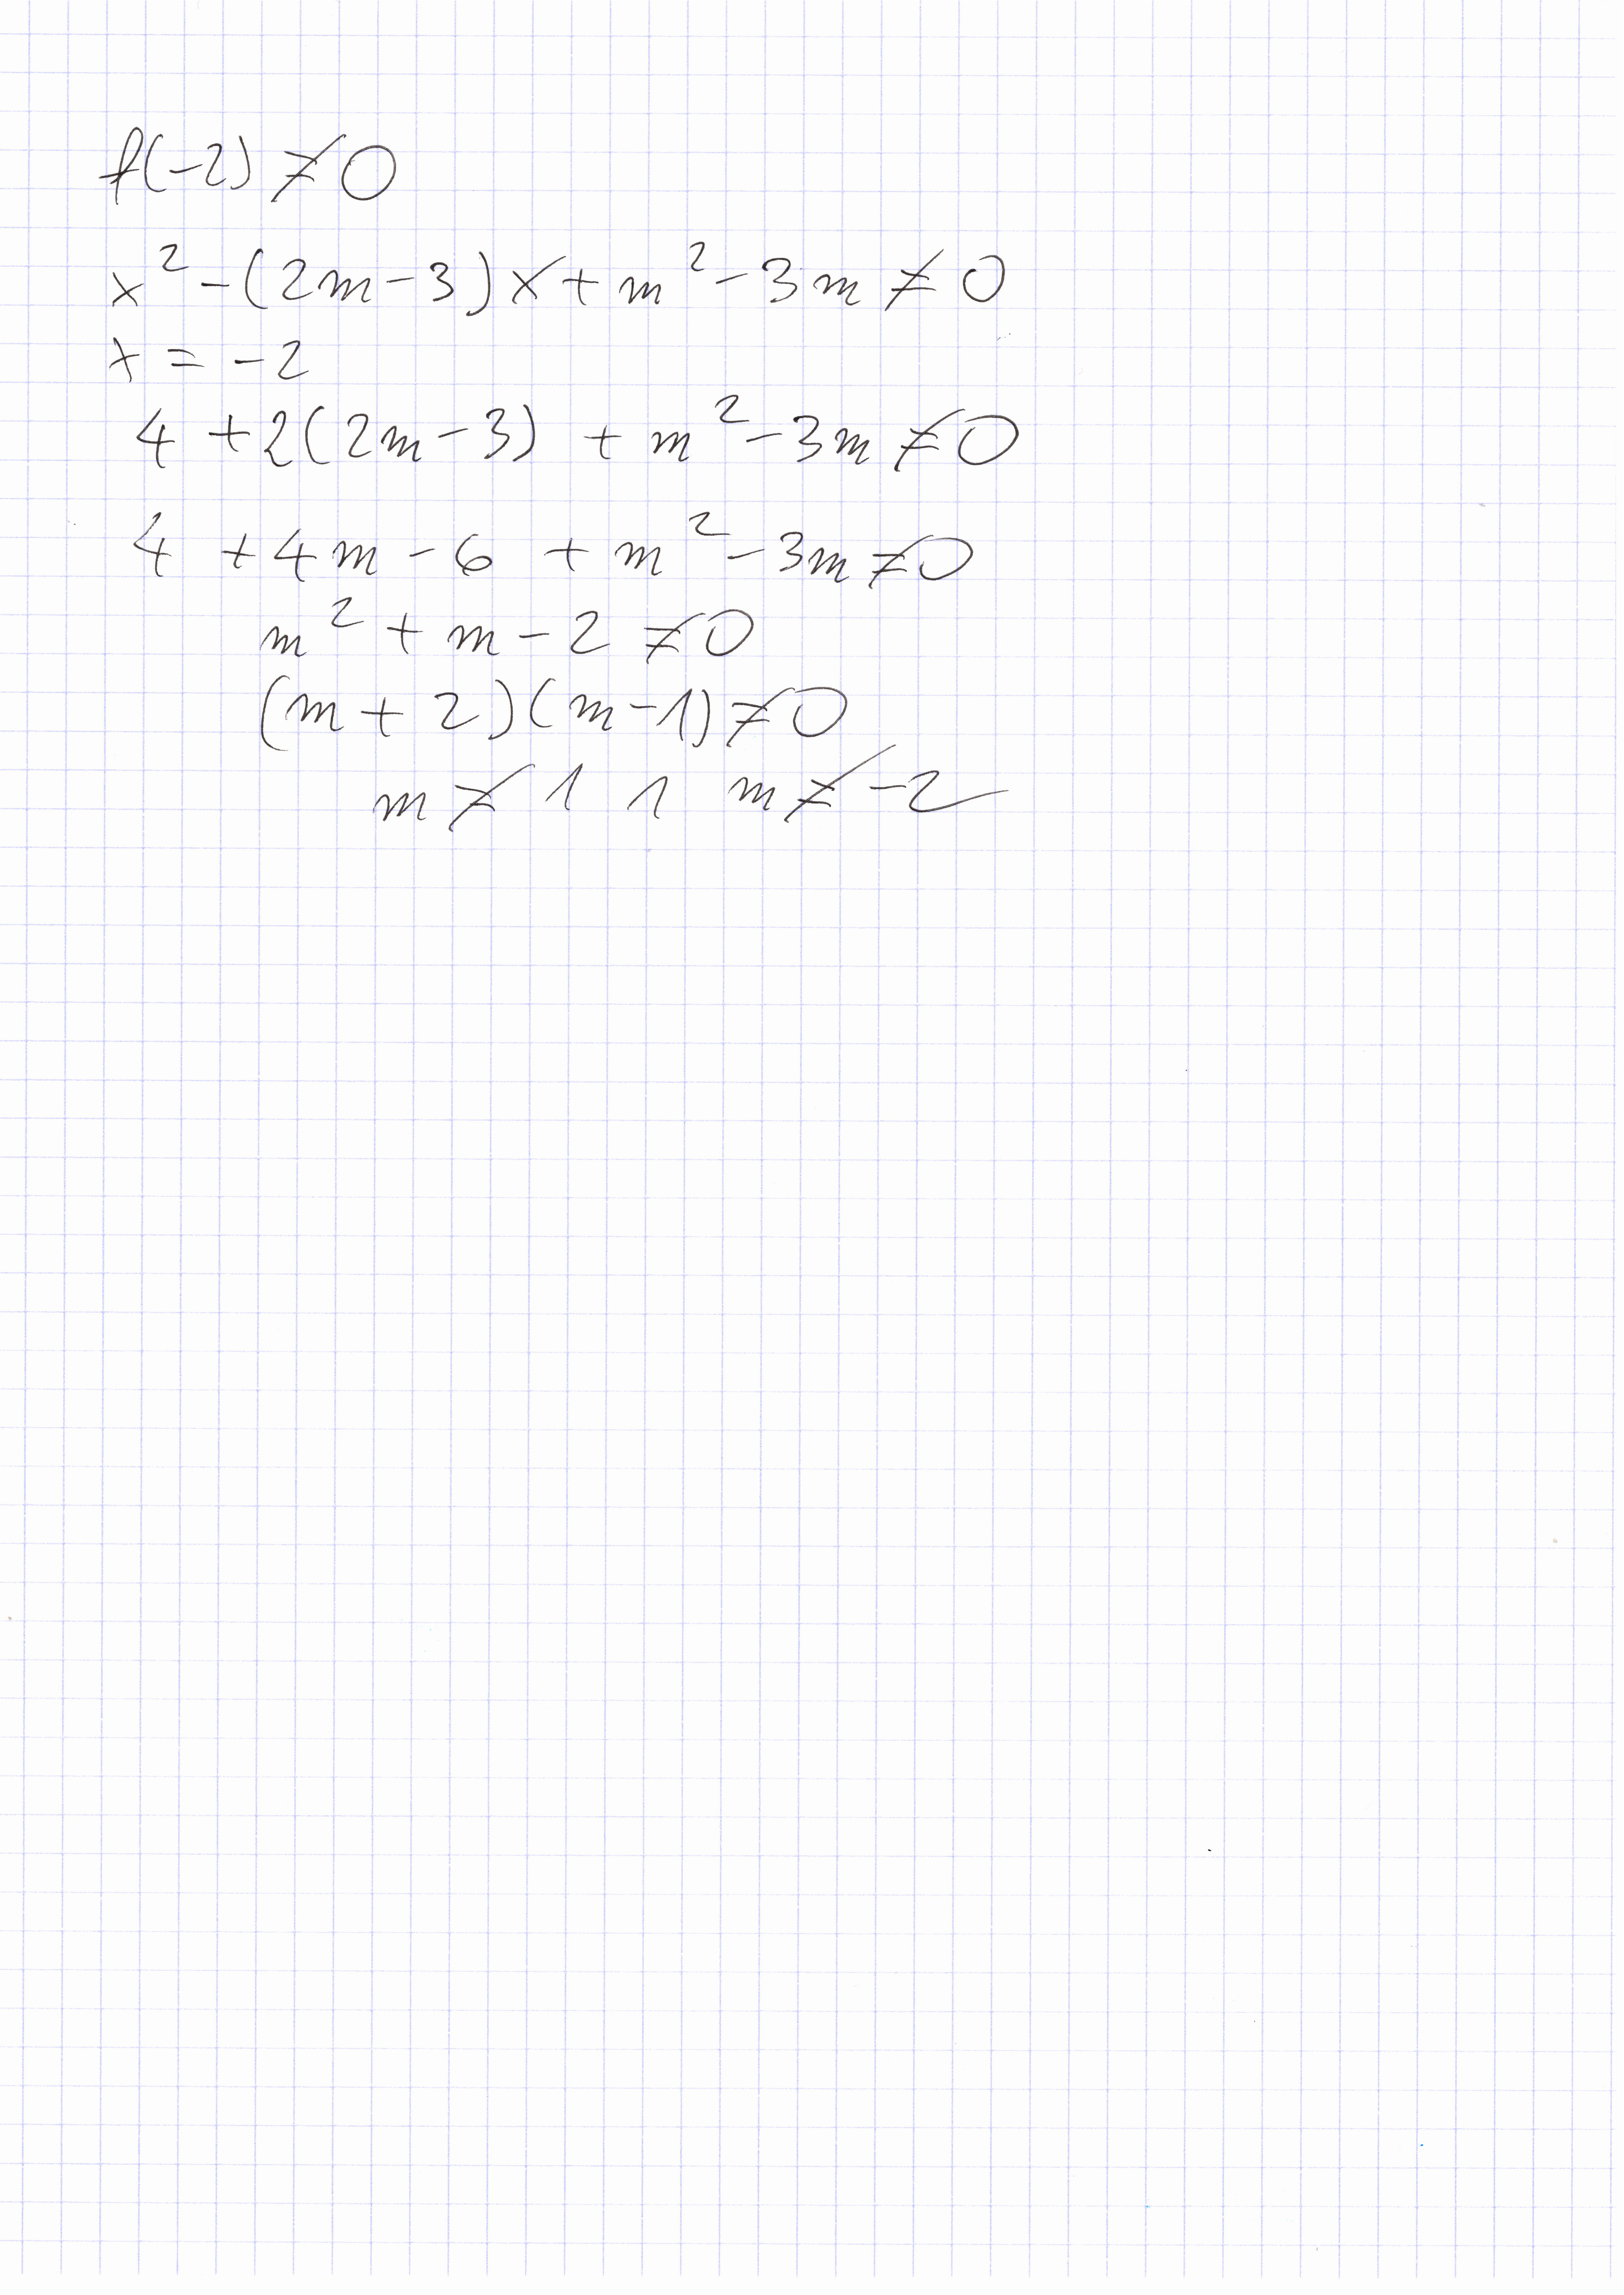 f(-2) ≠ 0
x² - (2m - 3)x + m² - 3m ≠ 0
x = -2
4 + 2(2m - 3) + m² - 3m ≠ 0
4 + 4m - 6 + m² - 3m ≠ 0
m² + m - 2 ≠ 0
(m + 2)(m - 1) ≠ 0
m ≠ 1 ∧ m ≠ -2